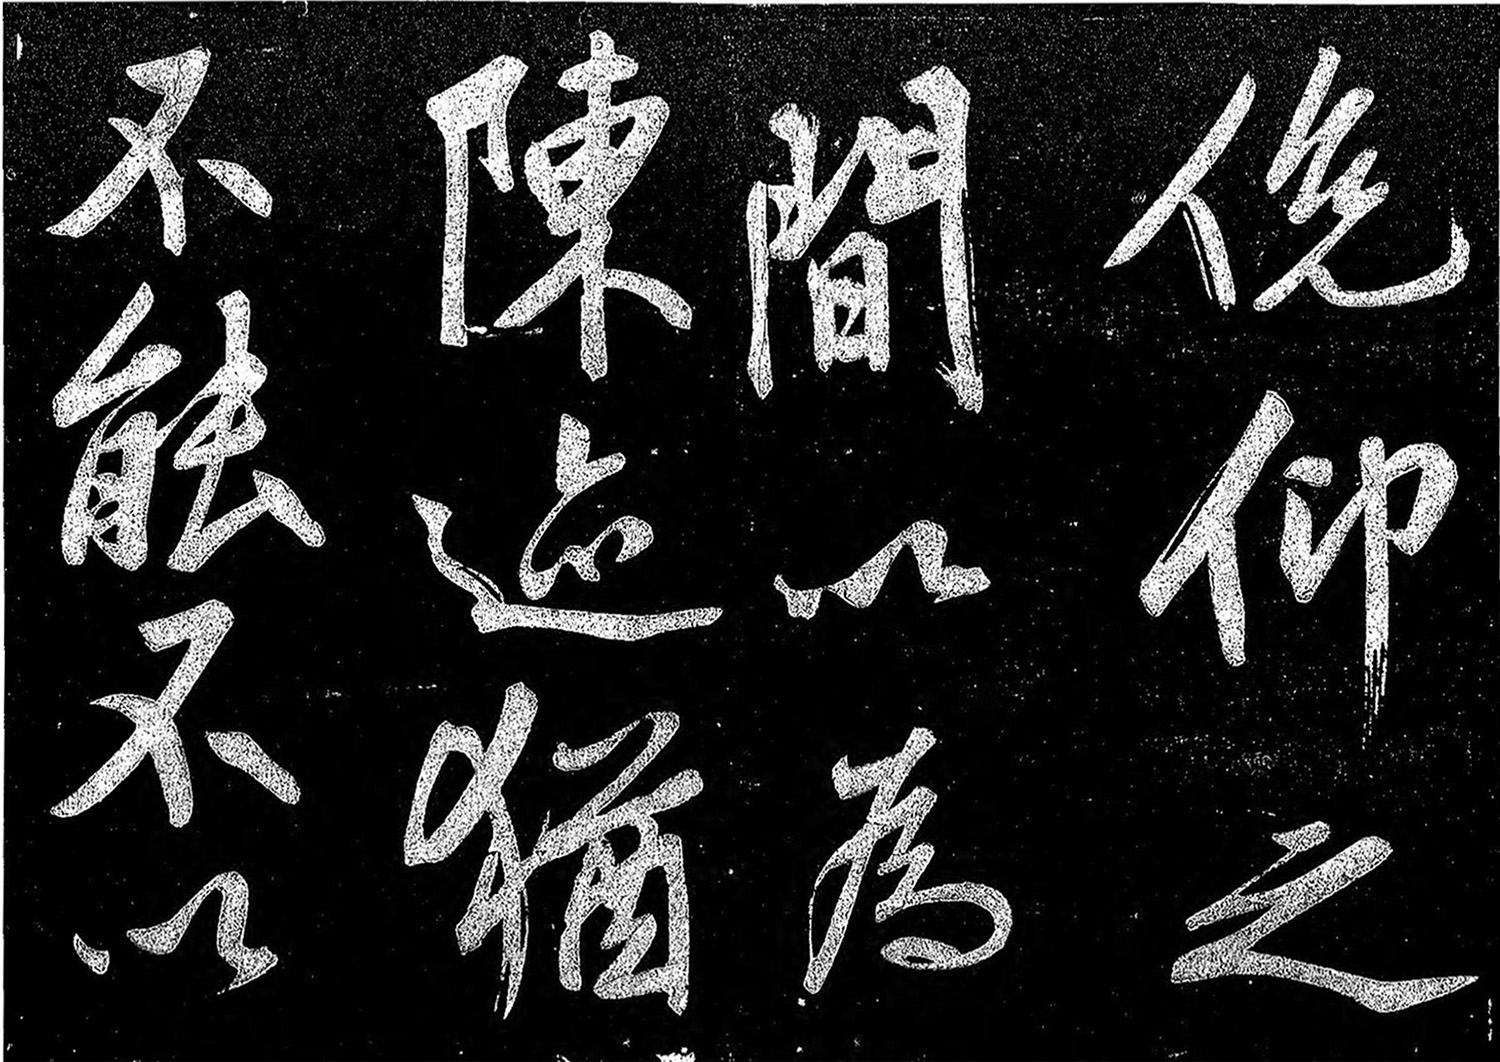 俛仰之
間以為
陳迹猶
不能不以